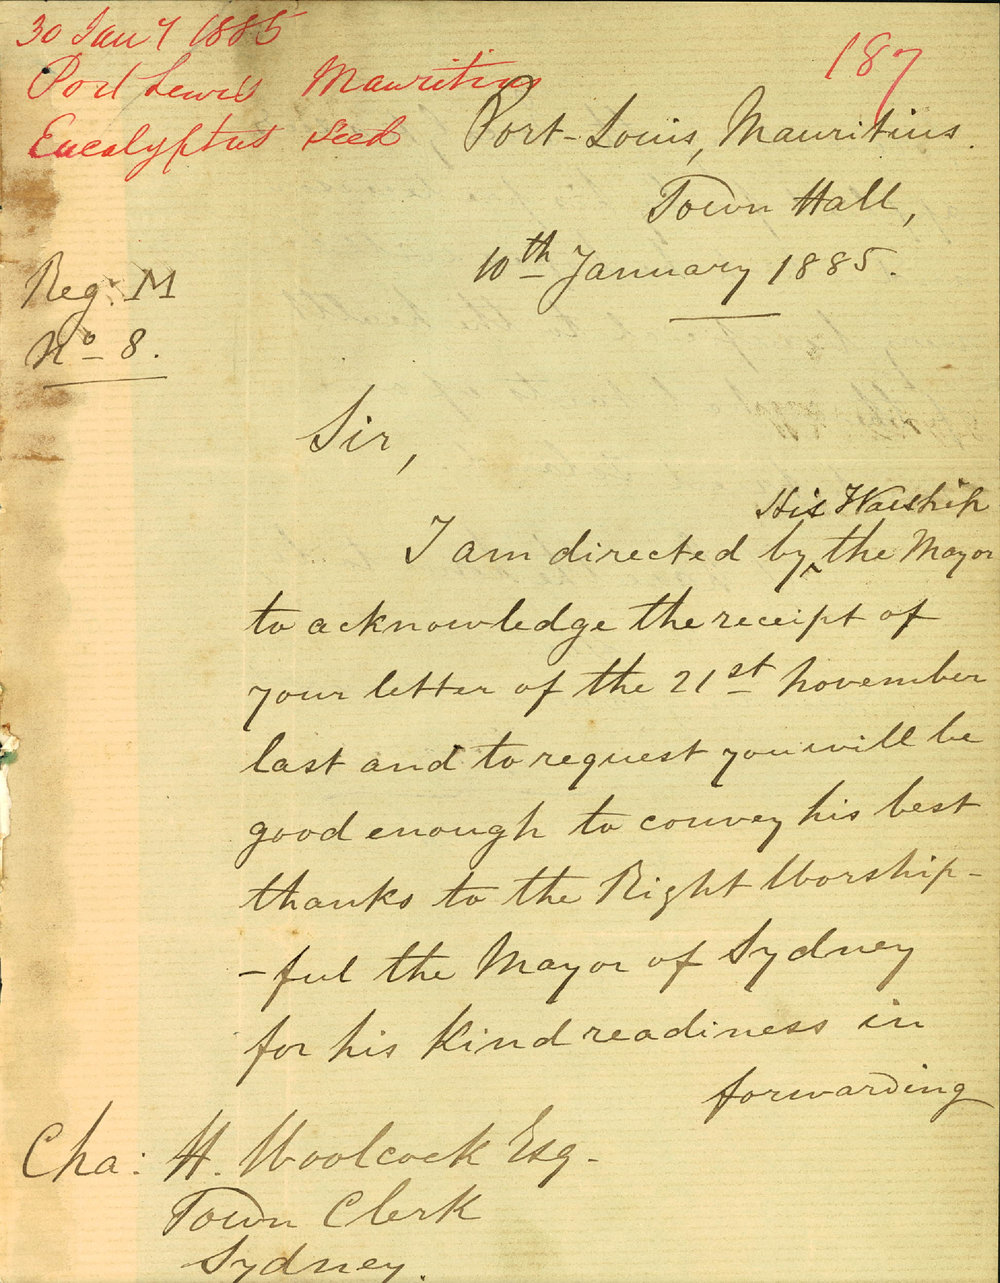 30 Jany 1885
Port Lewis Mauritius
Eucalyptus seed
187
Port-Louis, Mauritius.
Town Hall,
10th January 1885.
Reg. M
No 8.
Sir,
His Worship
I am directed by ^ the Mayor
to acknowledge the receipt of
your letter of the 21st November
last and to request you will be
good enough to convey his best
thanks to the Right Worship-
-ful the Mayor of Sydney
for his kind readiness in
forwarding
Cha: H. Woolcock Esq.
Town Clerk
Sydney.